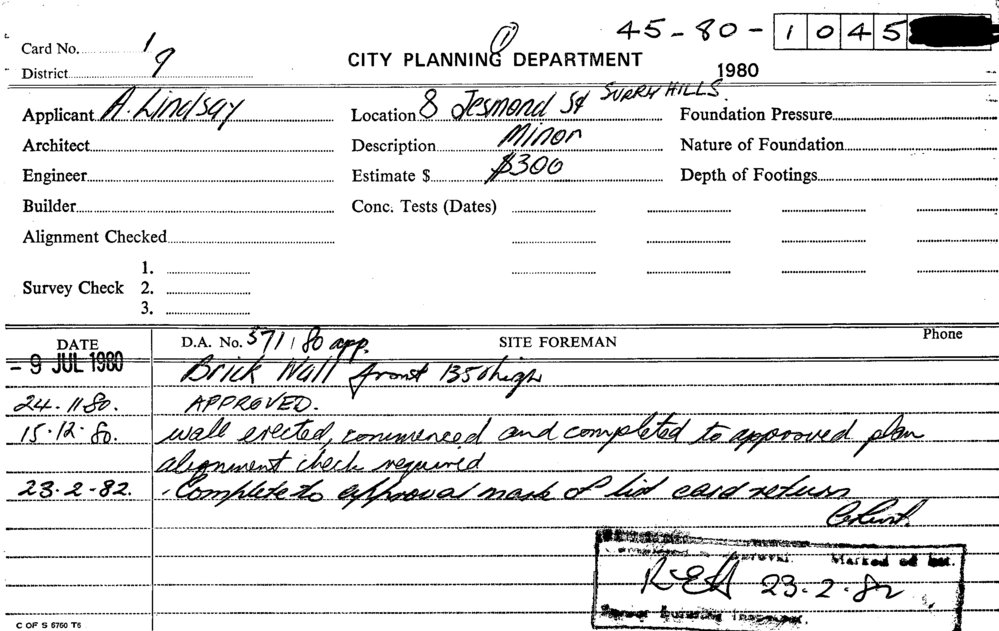 45-80-1045
Card No. 1
District 9
1
CITY PLANNING DEPARTMENT
1980
Applicant A. Lindsay
Location 8 Jesmond St SURRY HILLS
Foundation Pressure
Architect
Description Minor
Nature of Foundation
Engineer
Estimate $ $300
Depth of Footings
Builder
Conc. Tests (Dates)
Alignment Checked
Survey Check
1.
2.
3.
DATE
D.A. No. 371/80 app.
SITE FOREMAN
Phone
- 9 JUL 1980 Brick Wall front 1350 high
24.11.80. APPROVED.
15.12.80. wall erected, commenced and completed to approved plan
alignment check required
23.2.82. Complete to approval mark of list card return
Marked off list.
23.2.82
C OF S 6760 T6